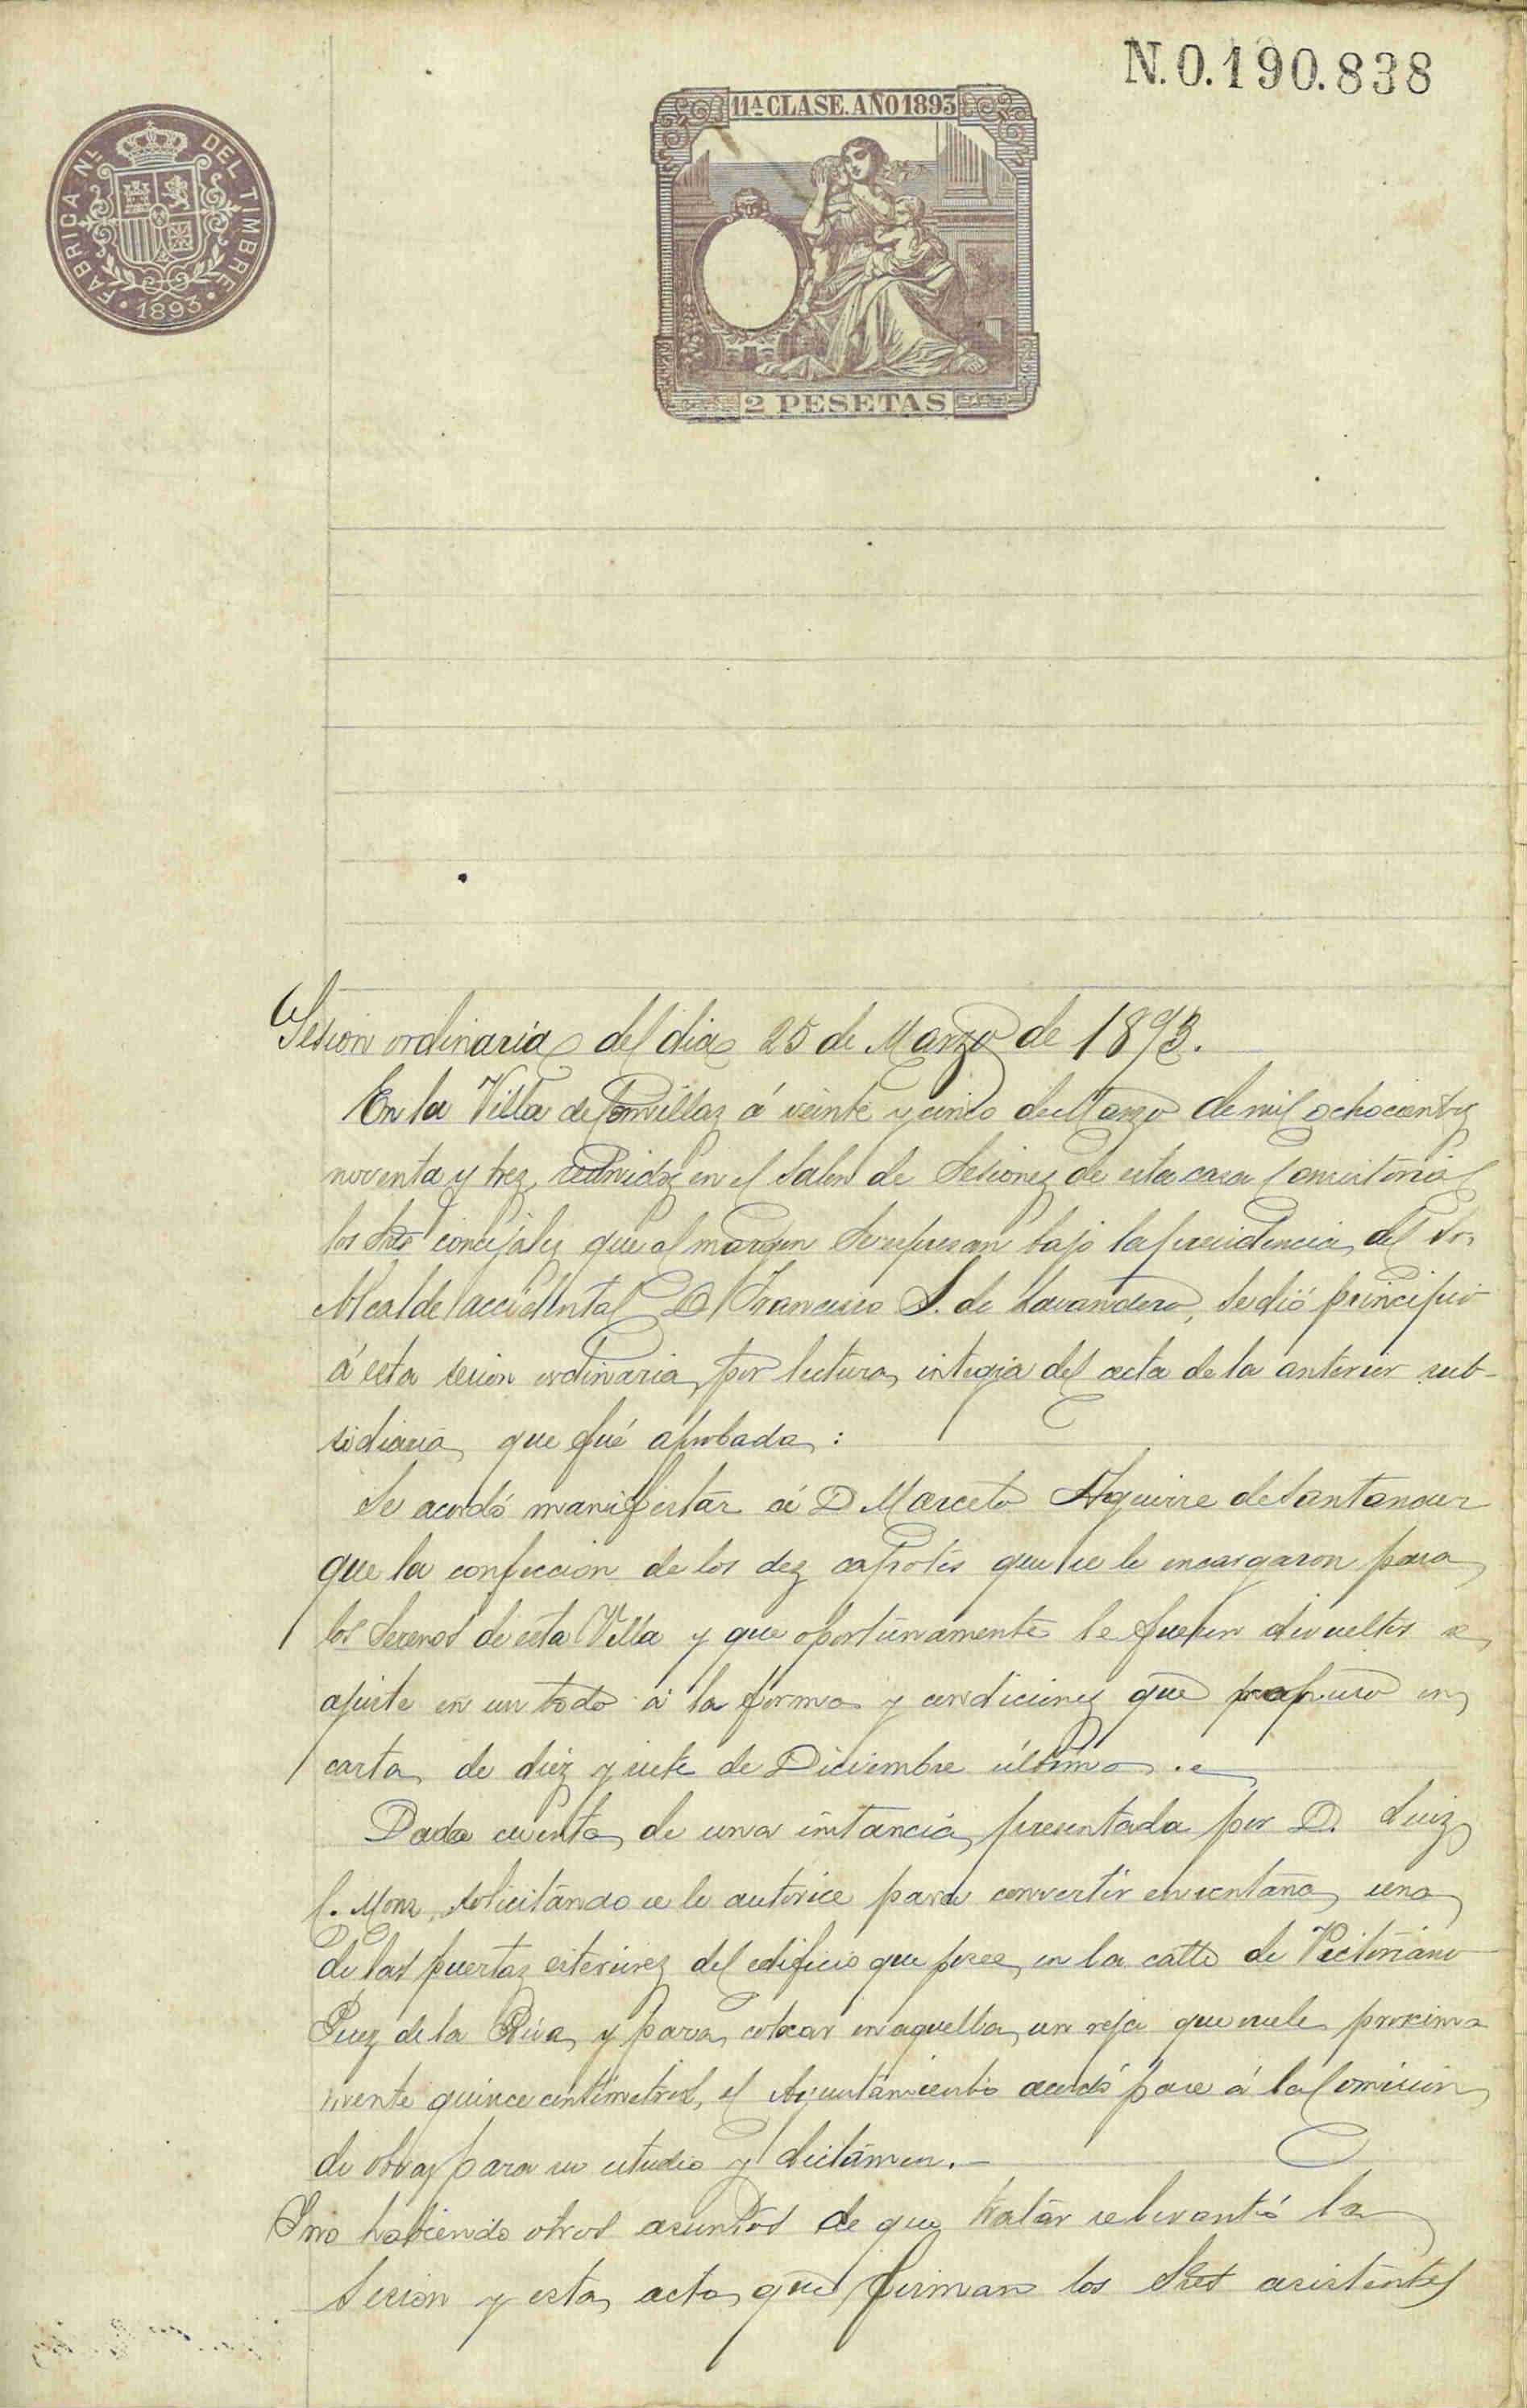 N.0.190.838
11ª CLASE. AÑO 1893
FABRICA Nᴸ DEL TIMBRE
1893
2 PESETAS
Sesion ordinaria del dia 25 de Marzo de 1893.
En la Villa de Comillas á veinte y cinco de Marzo de mil ochocientos
noventa y tres, reunidos en el Salon de Sesiones de esta casa Consistorial
los Sres concejales que al margen se expresan bajo la presidencia del Sr.
Alcalde accidental D. Francisco S. de Lavandero, se dió principio
á esta sesion ordinaria por lectura integra del acta de la anterior sub-
sidiaria que fué aprobada:
Se acordó manifestar á D Marcelo Aguirre de Santander
que la confeccion de los dos capotes que se le encargaron para
los Serenos de esta Villa y que oportunamente le fueron devueltos se
ajuste en un todo á la forma y condiciones que propuso en
carta de diez y siete de Diciembre último.
Dada cuenta de una instancia presentada por D. Luis
solicitando se le autorice para convertir en ventana una
de las puertas esteriores del edificio que posee en la calle de Victoriano
Perez de la Riva y para colocar en aquella un reja que vuele proxima
mente quince centimetros, el Ayuntamiento acordó pase á la Comision
de obras para su estudio y dictámen.
Y no habiendo otros asuntos de que tratar se levantó la
Sesion y esta acta que firman los Sres asistentes